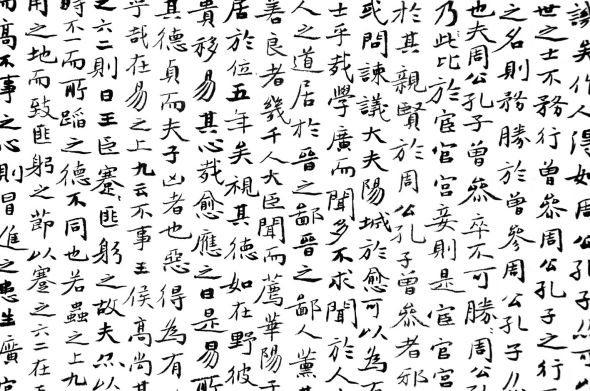 譏矣作人得如周公孔子
世之士不務行曾參周公孔子之行
之名則務勝於曾參周公孔子
也夫周公孔子曾參卒不可勝周公
乃此比於宦官宮妾則是宦官宮
於其親賢於周公孔子曾參者邪
或問諫議大夫陽城於愈可以為
士乎哉學廣而聞多不求聞於人
人之道居於晉之鄙晉之鄙人薰其
善良者幾千人大臣聞而薦華陽子
居於位五年矣視其德如在野彼
貴移易其心哉愈應之曰是易所
其德貞而夫子凶者也惡得為有
乎哉在易之上九云不事王侯高尚其
之六二則曰王臣蹇匪躬之故夫然以
時不一而所蹈之德不同也若蠱之上九
用之地而致匪躬之節以蹇之六二在
高不事之心則冒進之患生廣官